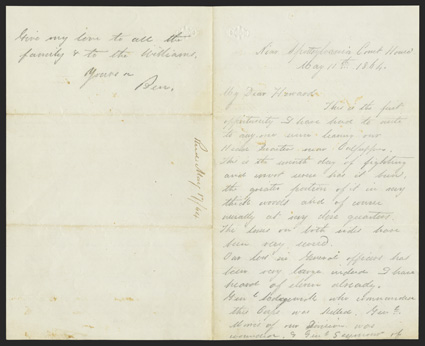 Give my love to all the
family & to the Williams.
Yours a
Ben.
Recd May 17/64
Near Spottsylvania Court House
May 11th 1864.
My Dear Howard
This is the first
opportunity I have had to write
to any one since leaving our
Head Quarters near Culpepper.
This is the seventh day of fighting
and most severe has it been,
the greater portion of it in very
thick woods and of course
nearly at very close quarters.
The losses on both sides have
been very severe.
Our loss in General officers has
been very large indeed I have
heard of eleven already.
Genl Sedgwick, who commanded
this Corps was killed. Genl
of our Division was
& Genl of